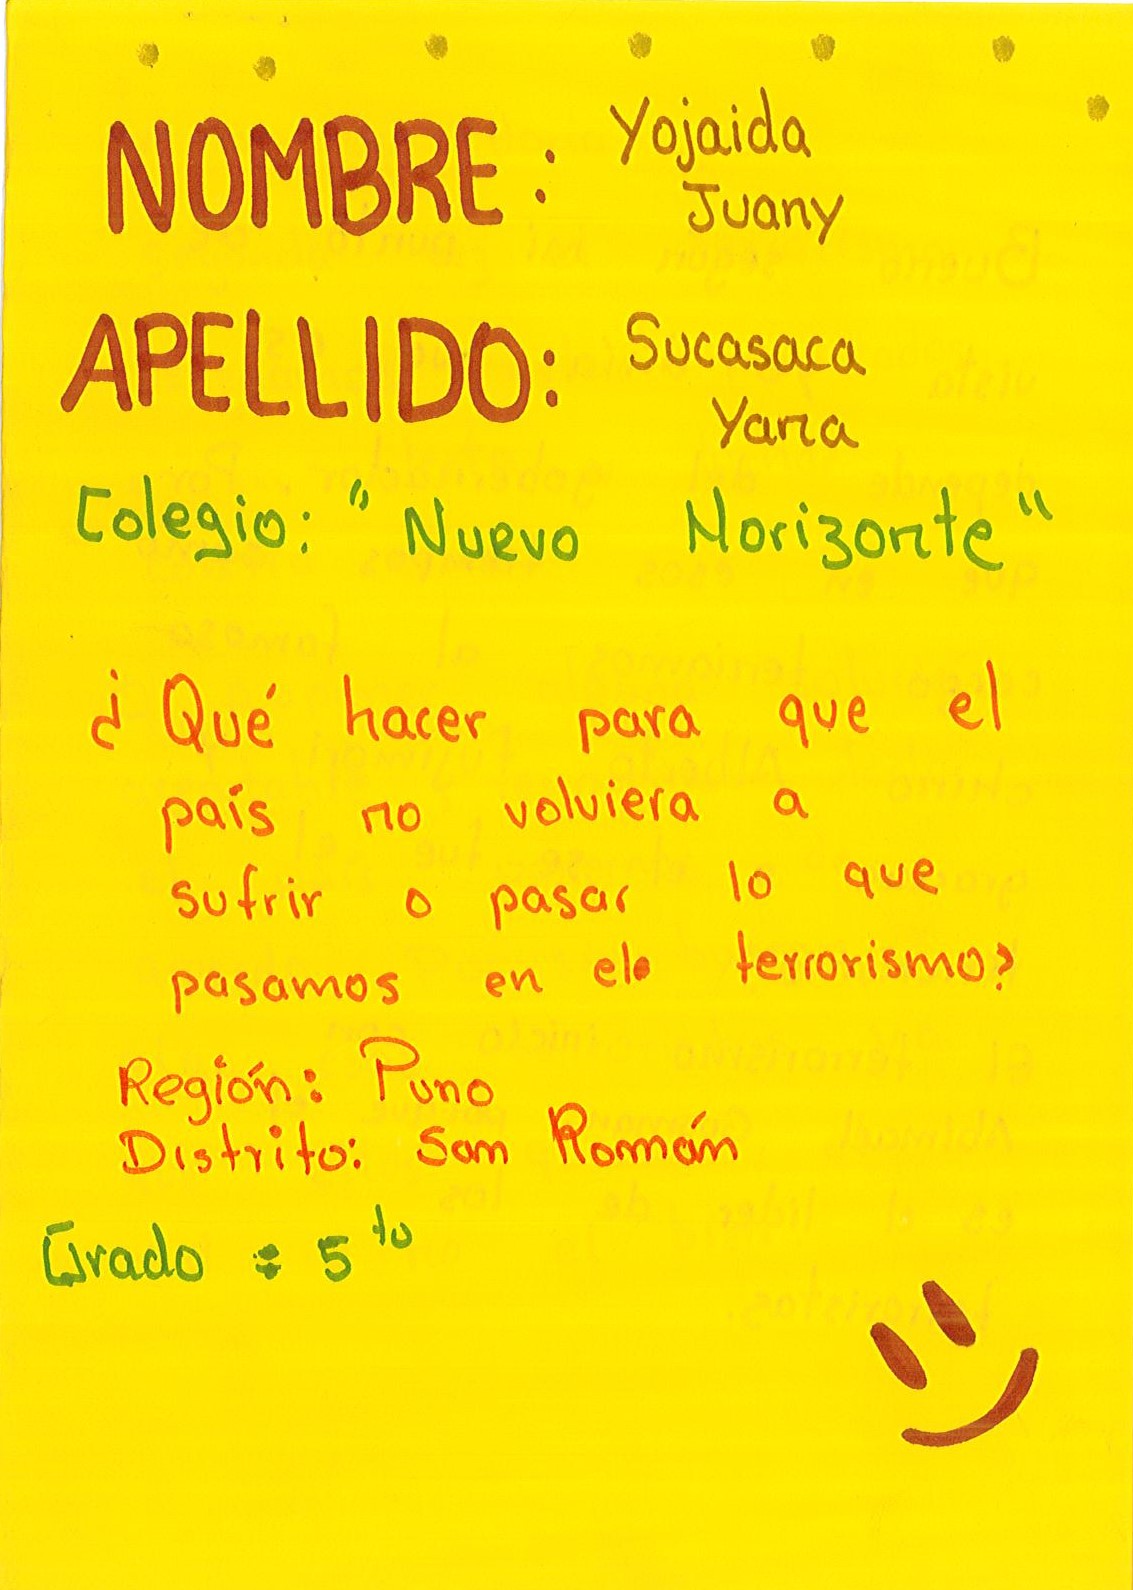 NOMBRE: Yojaida
Juany
APELLIDO: Sucasaca
Yana
Colegio: "Nuevo Horizonte"
¿Qué hacer para que el
país no volviera a
sufrir o pasar lo que
pasamos en el terrorismo?
Región: Puno
Distrito: San Román
Grado : 5to